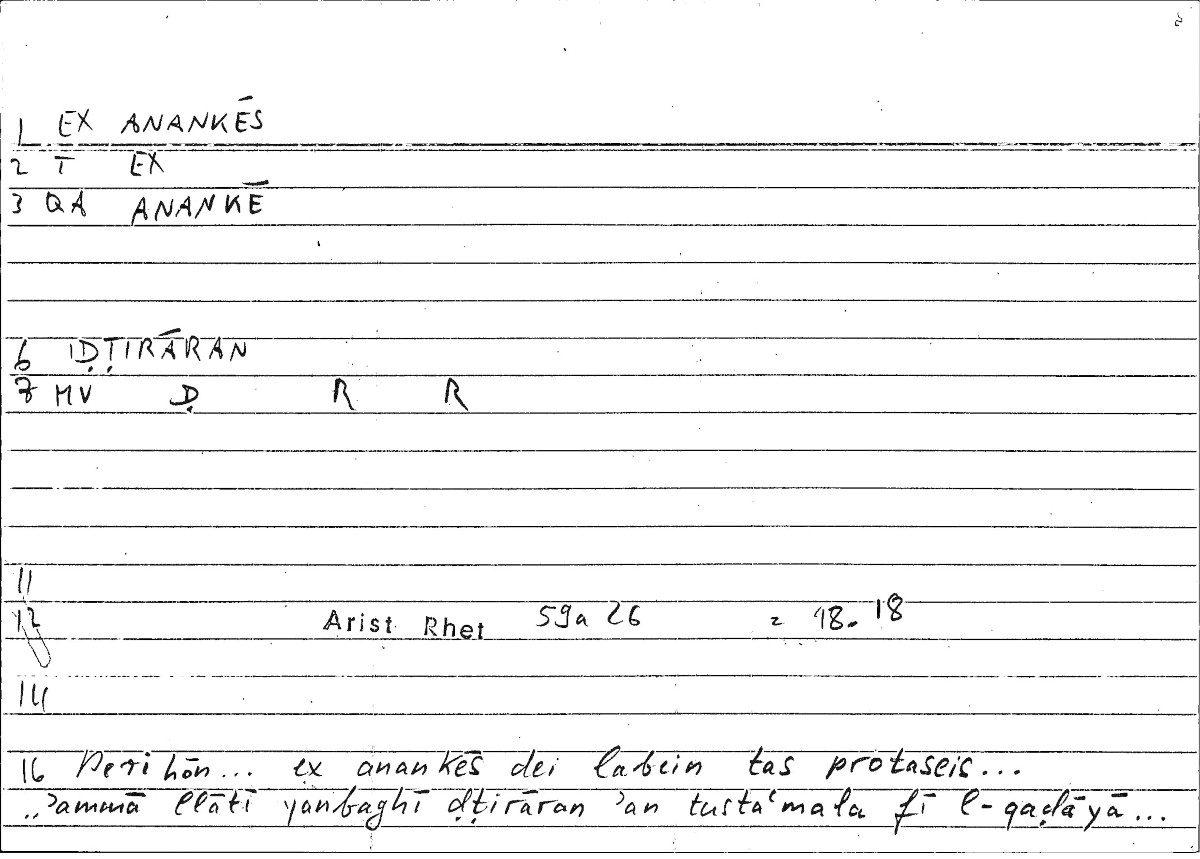 1 EX ANANKĒS
2 T EX
3 QA ANANKĒ
6 IḌṬIRĀRAN
7 MV Ḍ R R
11
12 Arist Rhet 59a 26 = 18.18
14
16 Peri hōn... ex anankēs dei labein tas protaseis...
..ʾammā llātī yanbaghī ḍṭirāran ʾan tustaʿmala fī l-qaḍāyā...